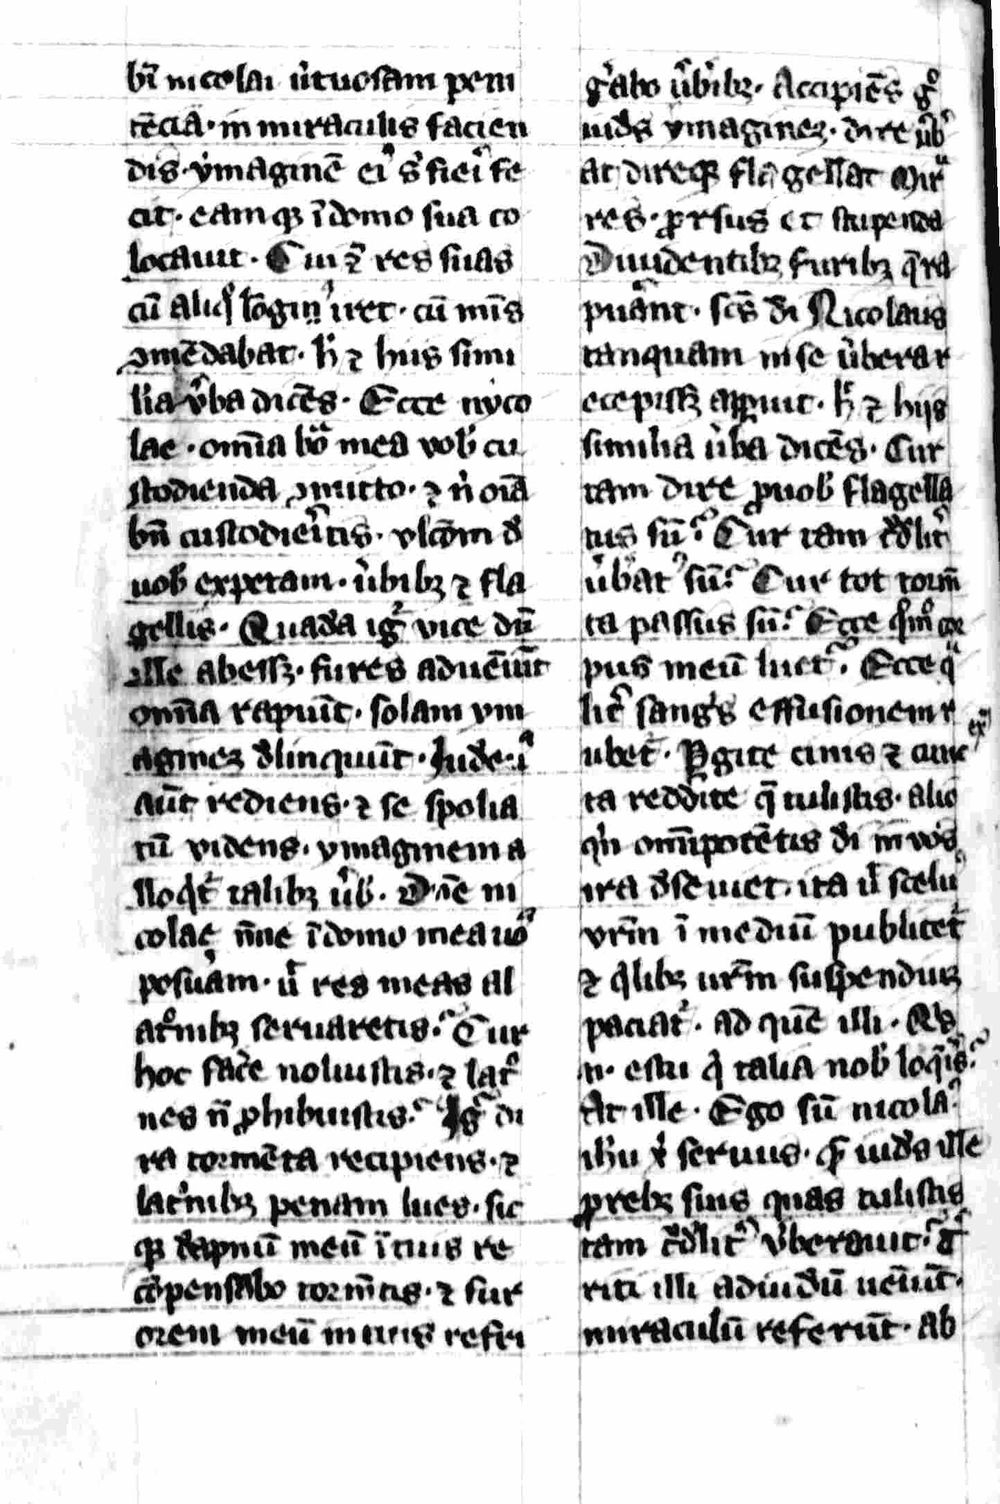 bti nicolai u̾tuosam poten
tēcia · in miraculis facien
dis · ymaginē ei᷒ s᷒ fieri fe
cit · eamqꝫ ī domo sua co
locauit · Cui ⁊ res suas
cū aliq̊ lōgin᷒ iret · cū minis
ꝯmēdabat · h̄ ⁊ huis simi
lia v̾ba dicēs · Ecce nyco
lae · omīa bōa mea vob̾ cu
stodienda ꝯmitto · ⁊ n̾ oīa
bn̄ custodieritis · vlcōm d̾
uob̾ expetam · u̾bibꝫ ⁊ fla
gellis · Quada ig̾ vice dū
ille abessꝫ · fures aduēiūt
omīa rapuīt · solam ym
aginez d̾linquūt · Inde · i᷒
aūt rediens · ⁊ se spolia
tū videns · ymaginem a
lloq̄t̾ talibꝫ u̾b̾ · Dn̄e ni
colae n̄ne ī domo mea uō
posu̾am · ut̾ res meas al
at̾nibꝫ seruaretis · Cur
hoc fac̾e noluistis · ⁊ lat̾
nes n̄ ꝓhibuistis · Ig̾ di
ra tormēta recipiens · ⁊
lat̾nibꝫ penam lues · sic
qꝫ dāpnū meū ī tuis re
cōpensabo torm̄tis · ⁊ fur
orem meū in tuis refri
g̾abo u̾bibꝫ · Accipiēs g̊
iud̾s ymaginez · dire u̾b̾
at direqꝫ flagellat Mir
res · ꝓrsus et stupenda
Diuidentibꝫ furibꝫ q̄ ra
pu̾ant · scs̄ di Nicolaus
tanquam in se u̾bera r
ecepissꝫ apꝑuit · h̄ ⁊ hijs
similia u̾ba dicēs · Cur
tam dire ꝓ uob̾ flagella
tus sū · Cur tam c̾d̾lit̾
u̾b̾at᷒ sū · Cur tot torm̄
ta passus sū · Ecce q̊m̊ cor
pus meū liuet · Ecce q̄
lit̾ sang̾s effusione m r
ubet · Ꝑgite cicius ⁊ cunc
ta reddite q̄ tulistis · alio
q̄n omīpotētis di in vos
ira d̾seuiet · ita ut̾ scelus
vrm̄ ī mediū publicet̾
⁊ q̄libꝫ urm̄ suspendiuꝫ
paciat̾ · ad quē illi · Qs̾
n̄ · es tu q̾ talia nob̾ loq̾is
At ille · Ego sū nicola᷒
ihu xp̄i seruus · quē iud̾s ille
ꝓ rebꝫ suis quas tulistis
tam c̾d̾lit̾ v̾berauit · T̾
riti illi ad iud̾ū uēiūt ·
miraculū referūt · ab